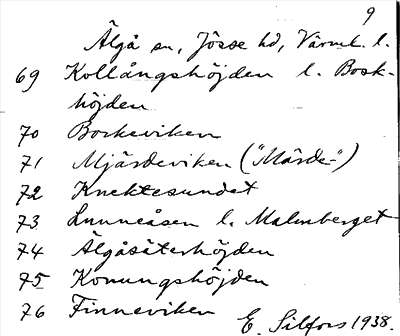 9
Älgå sn, Jösse hd, Värml. l.
69 Kollångshöjden l. Bosk-
höjden
70 Borkeviken
71 Mjärdeviken ("Märde-")
72 Knektesundet
73 Lunneåsen l. Malmberget
74 Älgåsäterhöjden
75 Konungshöjden
76 Finneviken
E. Silfors 1938.